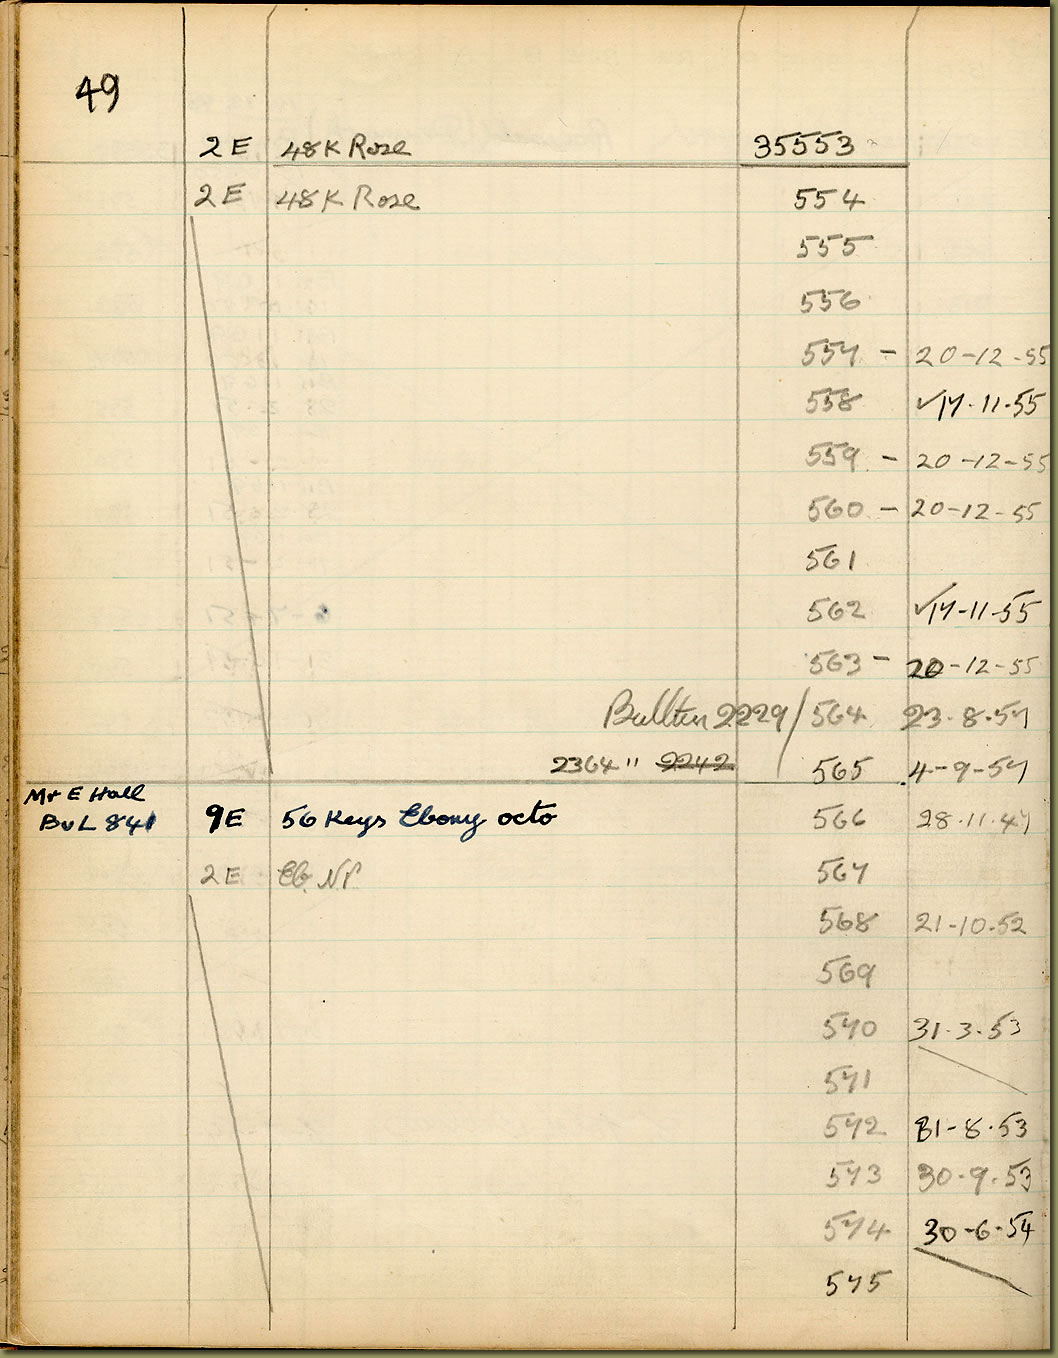 49
2 E 48 K Rose 35553
2 E 48 K Rose 554
555
556
557 - 20-12-55
558 ✓17-11-55
559 - 20-12-55
560 - 20-12-55
561
562 ✓17-11-55
563 - 20-12-55
Bulletin 2229 / 564 23-8-57
2364 " 2242 565 4-9-57
Mr E Hall
BvL 841 9E 56 Keys Ebony octo 566 28.11.47
2 E Eb. NP. 567
568 21-10-52
569
570 31.3.53
571
572 31-8.53
573 30-9.53
574 30-6-54
575